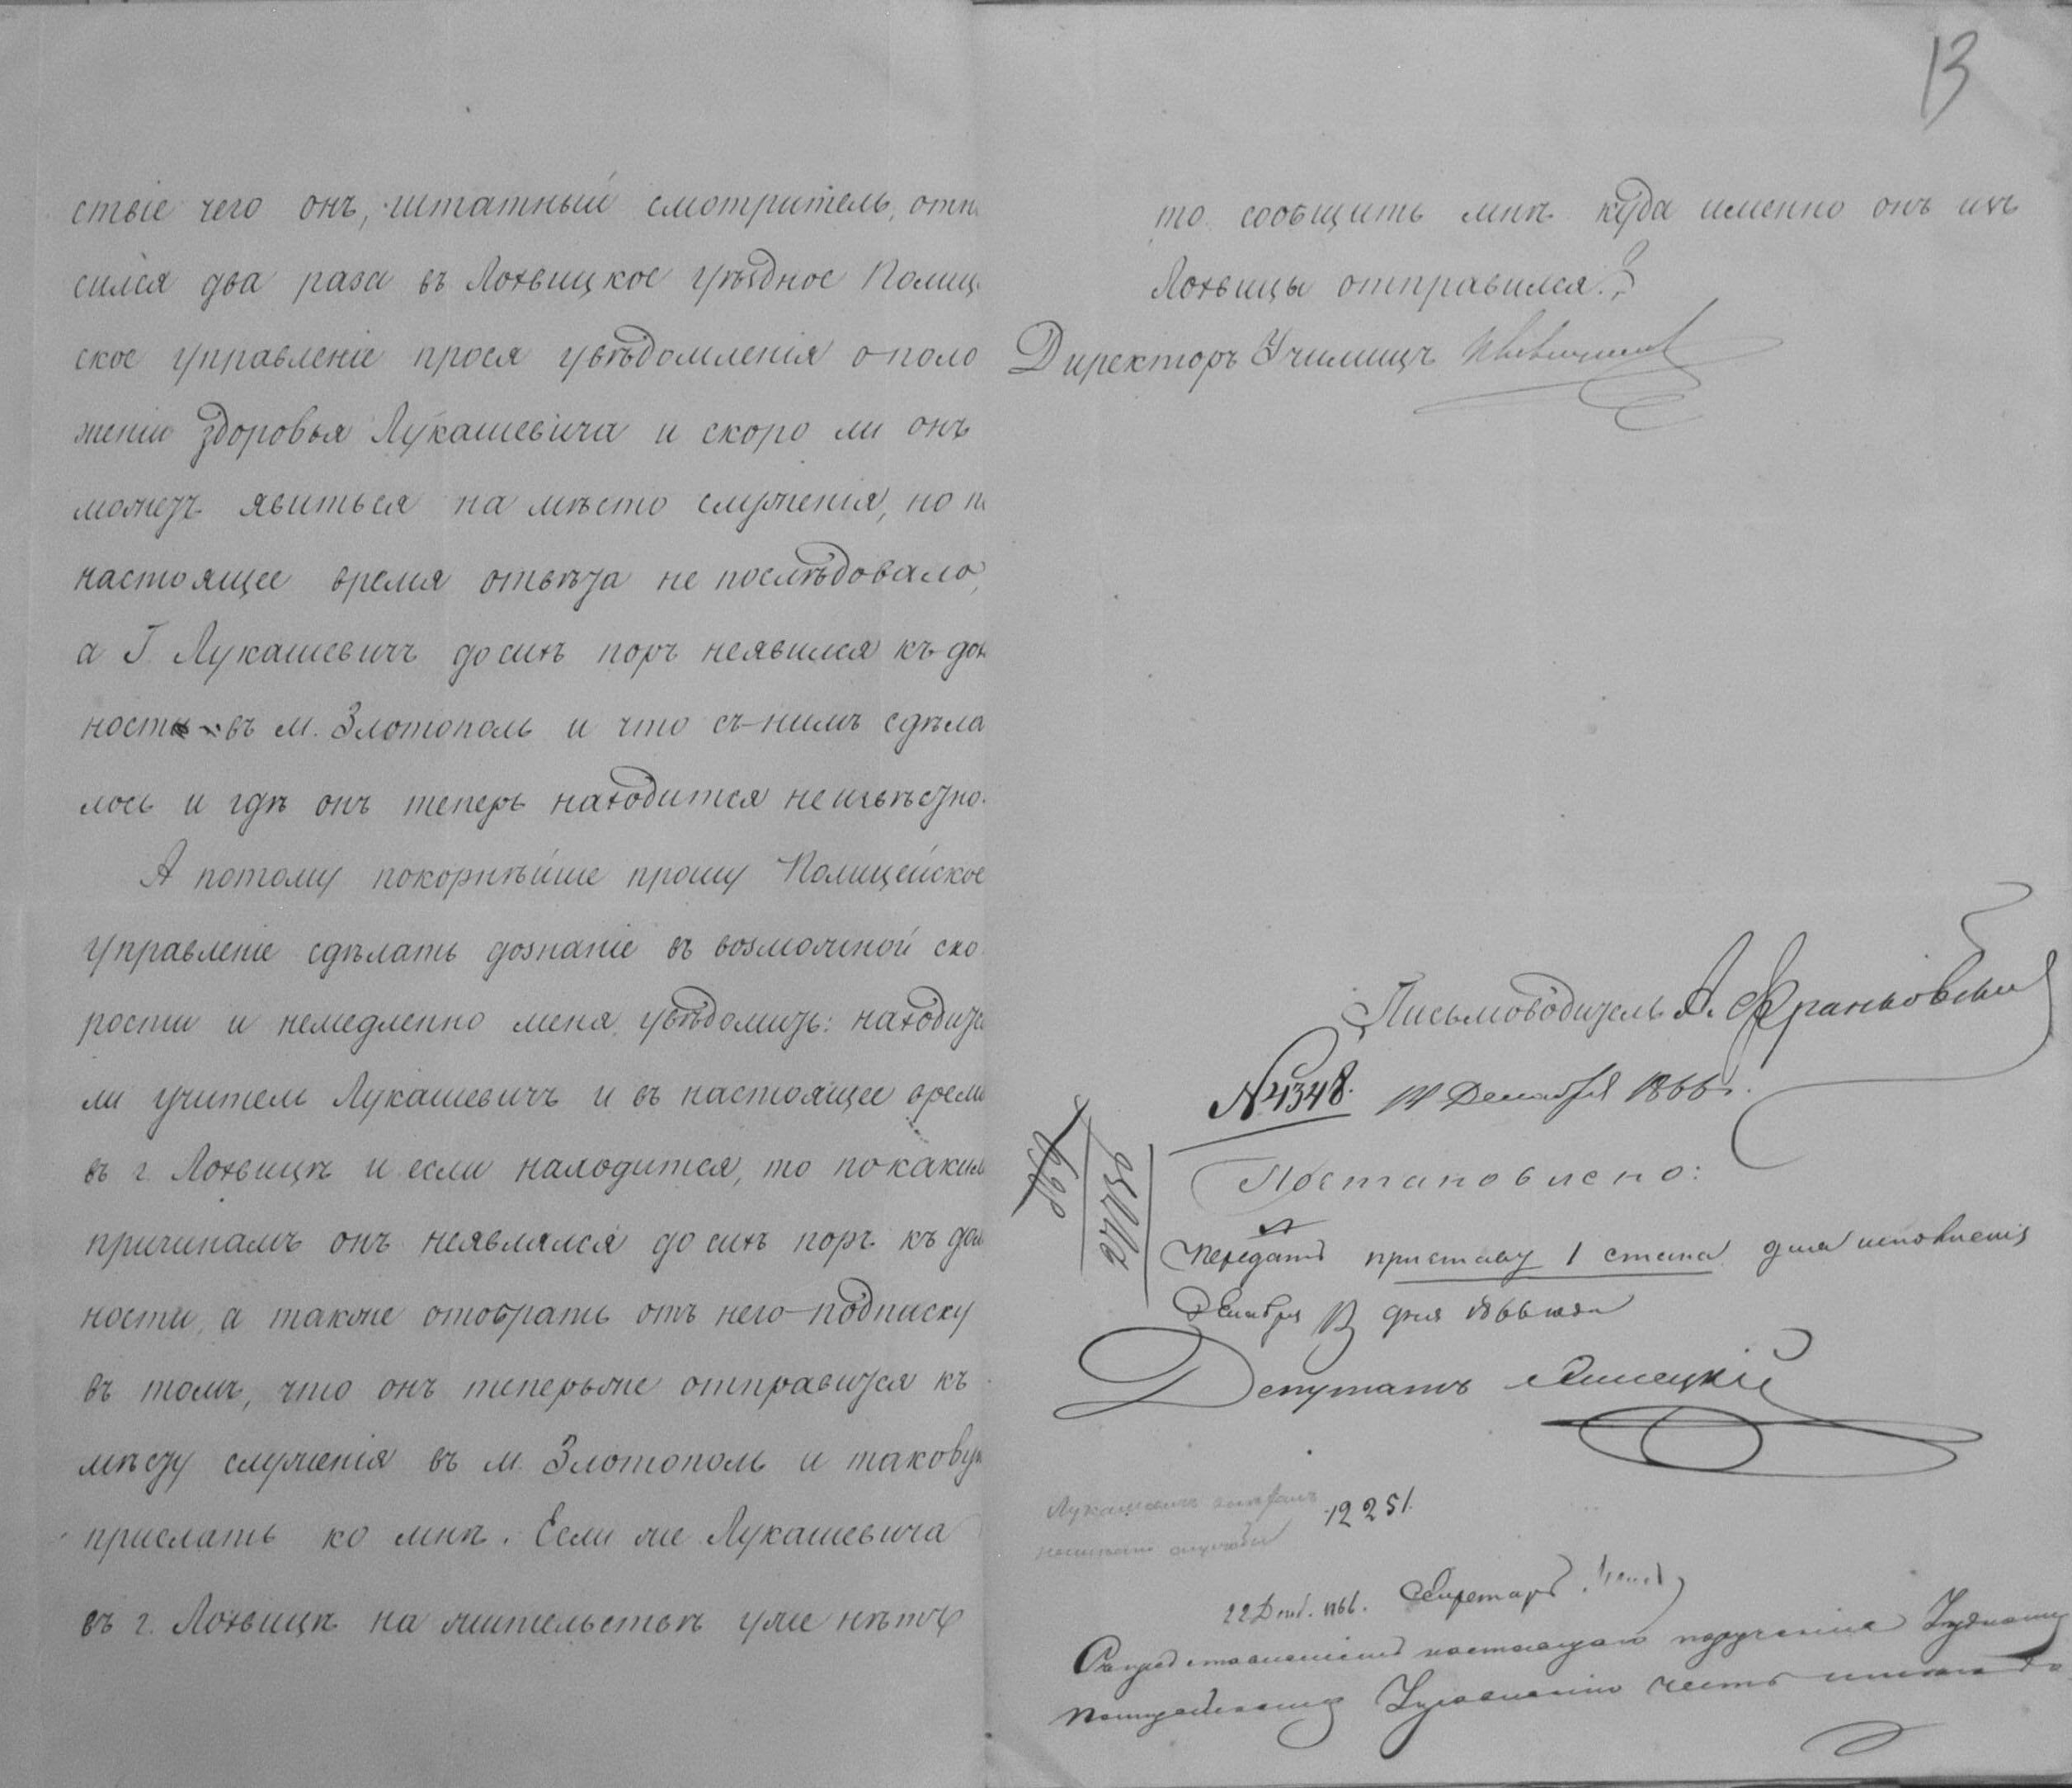 ствіе чего онъ, штатный смотритель, отн
сился два раза въ Лохвицкое уѣздное Полиц
ское управленіе прося увѣдомленія о поло
женіи здоровья Лукашевича и скоро ли онъ
можетъ явиться на мѣсто служенія, но п
настоящее время отвѣта не послѣдовало,
а Г. Лукашевичъ до сихъ поръ неявился къ дол
ности въ м. Златополь и что съ нимъ сдѣла
лось и гдѣ онъ теперь находится неизвѣстно.
А потому покорнѣйше прошу Полицейское
управленіе сдѣлать дознаніе въ возможной ско
рости и немедленно меня увѣдомить: находитс
ли учитель Лукашевичъ и въ настоящее время
въ г. Лохвицѣ и если находится, то по каким
причинамъ онъ неявлялся до сихъ поръ къ дол
ности, а также отобрать отъ него подписку
въ томъ, что онъ теперь же отправится къ
мѣсту служенія въ м. Злотополь и таковую
прислать ко мнѣ. Если же Лукашевича
въ г. Лохвицѣ на жительствѣ уже нѣтъ
13
то сообщить мнѣ куда именно онъ изъ
Лохвицы отправился?
Директоръ Училищъ
Письмоводитель А. Франковскій
№ 4348. 14 Декабря 1866 г.
869
Постановлено:
Передать приставу 1 стана для исполненія
Декабря дня 1866 года
Депутатъ
Лукашевичъ
12251.
22 Декаб. 1866. Секретарь
настоящаго порученія Уѣздному
Полицейскому Управленію честь имѣю